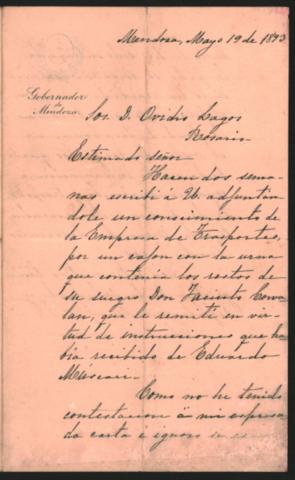 Mendoza, Mayo 19 de 1893
Gobernador
de
Mendoza
Sor. D. Ovidio Lagos
Rosario
Estimado señor
Hacen dos sema-
nas escribí á Ud. adjuntan-
dole un conocimiento de
la Empresa de Trasportes,
por un cajon con la urna
que contenia los restos de
su suegro Don Jacinto Corva-
lan, que le remití en vir-
tud de instrucciones que ha-
bia recibido de Eduardo
Como no he tenido
contestacion á mi espresa-
da carta é ignoro